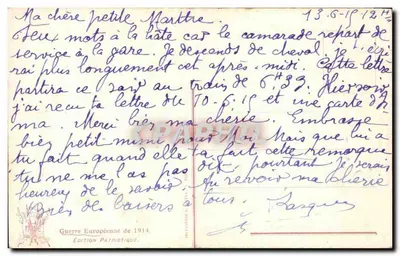 Ma chère petite Marthre. 13-6-15 12 H
Deux mots à la hâte car le camarade repart de
service à la gare. Je descends de cheval. Je t'écri
rai plus longuement cet après-midi. Cette lettre
partira ce soir au train de 6h33. Hier soir
j'ai reçu ta lettre du 10-6-15 et une carte d'A
ma. Merci bien ma chérie. Embrasse
bien petit mimi pour Moi. Mais que lui a
tu fait quand elle t'a fait cette remarque
tu ne me l'as pas dit pourtant je serais
heureux de le savoir. Au revoir ma chérie
Bons baisers à tous.
Guerre Européenne de 1914
Edition Patriotique.